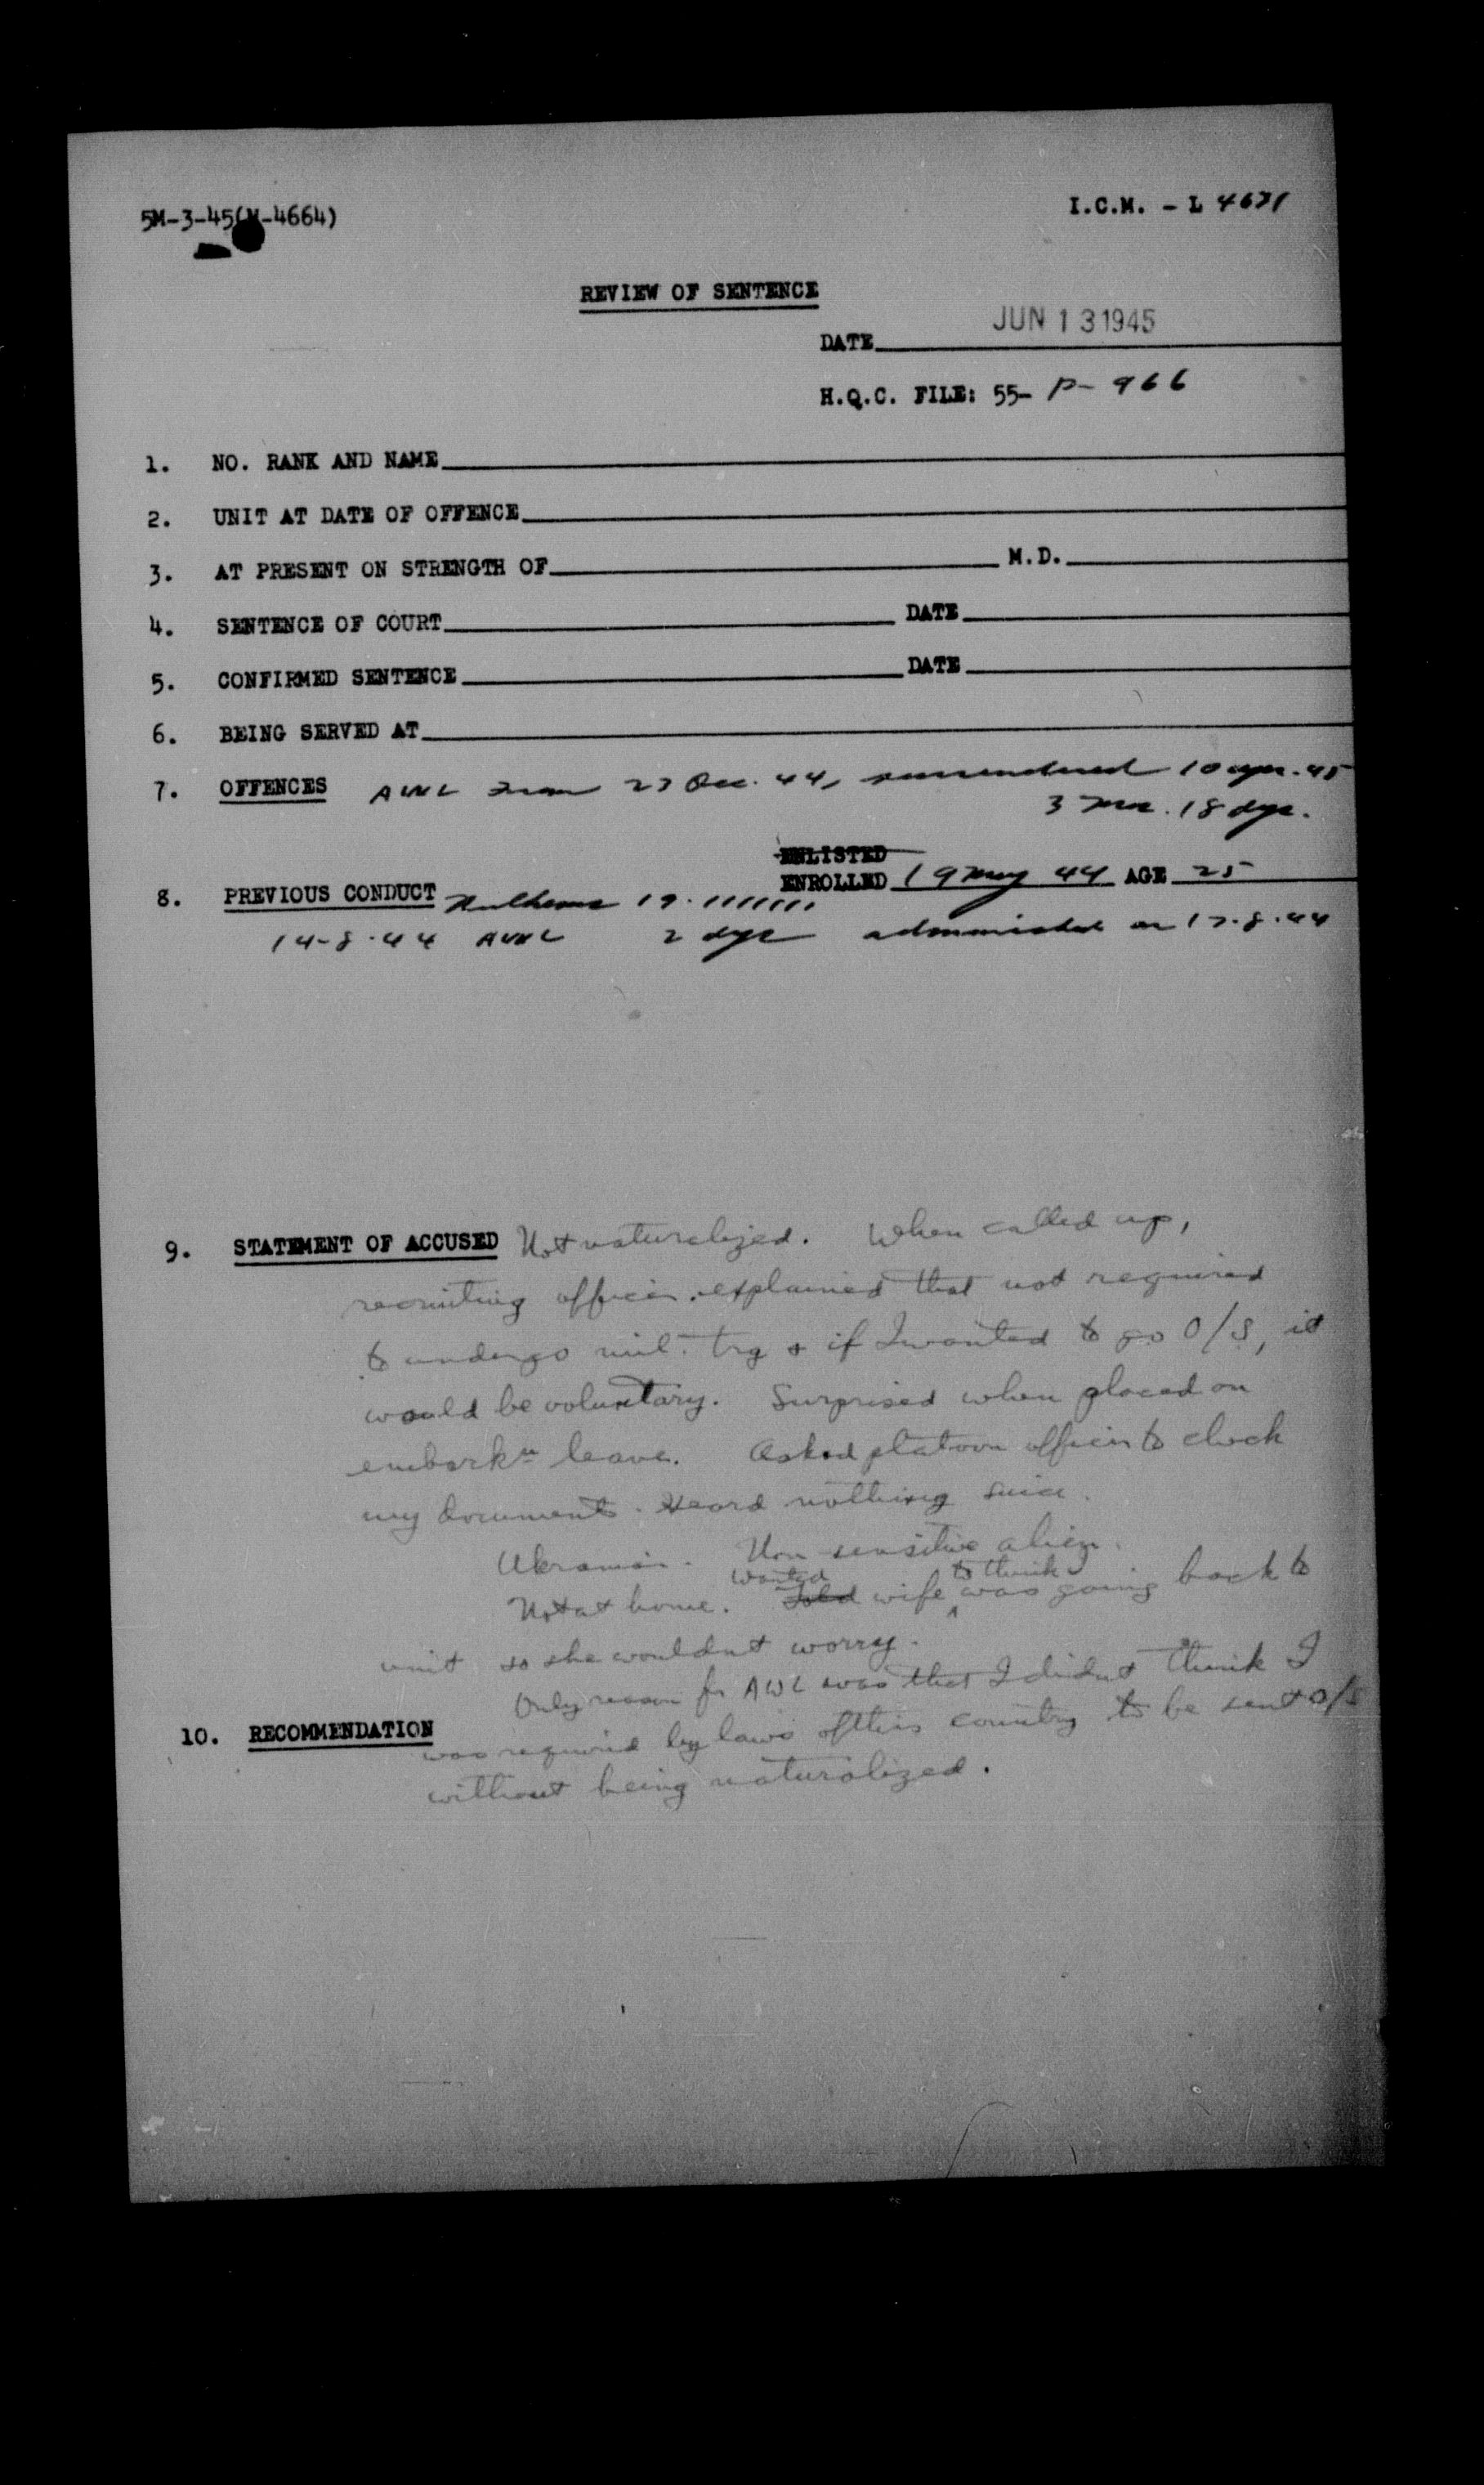 5M-3-45(M-4664)
I.C.M. - L 4671
REVIEW OF SENTENCE
JUN 13 1945
DATE
H.Q.C. FILE: 55- P- 966
1. NO. RANK AND NAME
2. UNIT AT DATE OF OFFENCE
3. AT PRESENT ON STRENGTH OF M.D.
4. SENTENCE OF COURT DATE
5. CONFIRMED SENTENCE DATE
6. BEING SERVED AT
7. OFFENCES AWL from 23 Dec. 44, surrendered 10 apr. 45
3 mos. 18 dys.
ENLISTED
ENROLLED 19 May 44 AGE 25
8. PREVIOUS CONDUCT
14-8-44 AWL 2 dys admonished on 17.8.44
9. STATEMENT OF ACCUSED Not naturalized. When called up,
recruiting officer explained that not required
to undergo mil. trg & if I wanted to go O/S, it
would be voluntary. Surprised when placed on
embarkn leave. Asked platoon officer to check
my documents. Heard nothing since.
Ukranian. Non sensitive alien.
Not at home. Told wanted wife to think was going back to
unit so she wouldnt worry.
Only reason for AWL was that I didnt think I
10. RECOMMENDATION
was required by laws of this country to be sent o/s
without being naturalized.